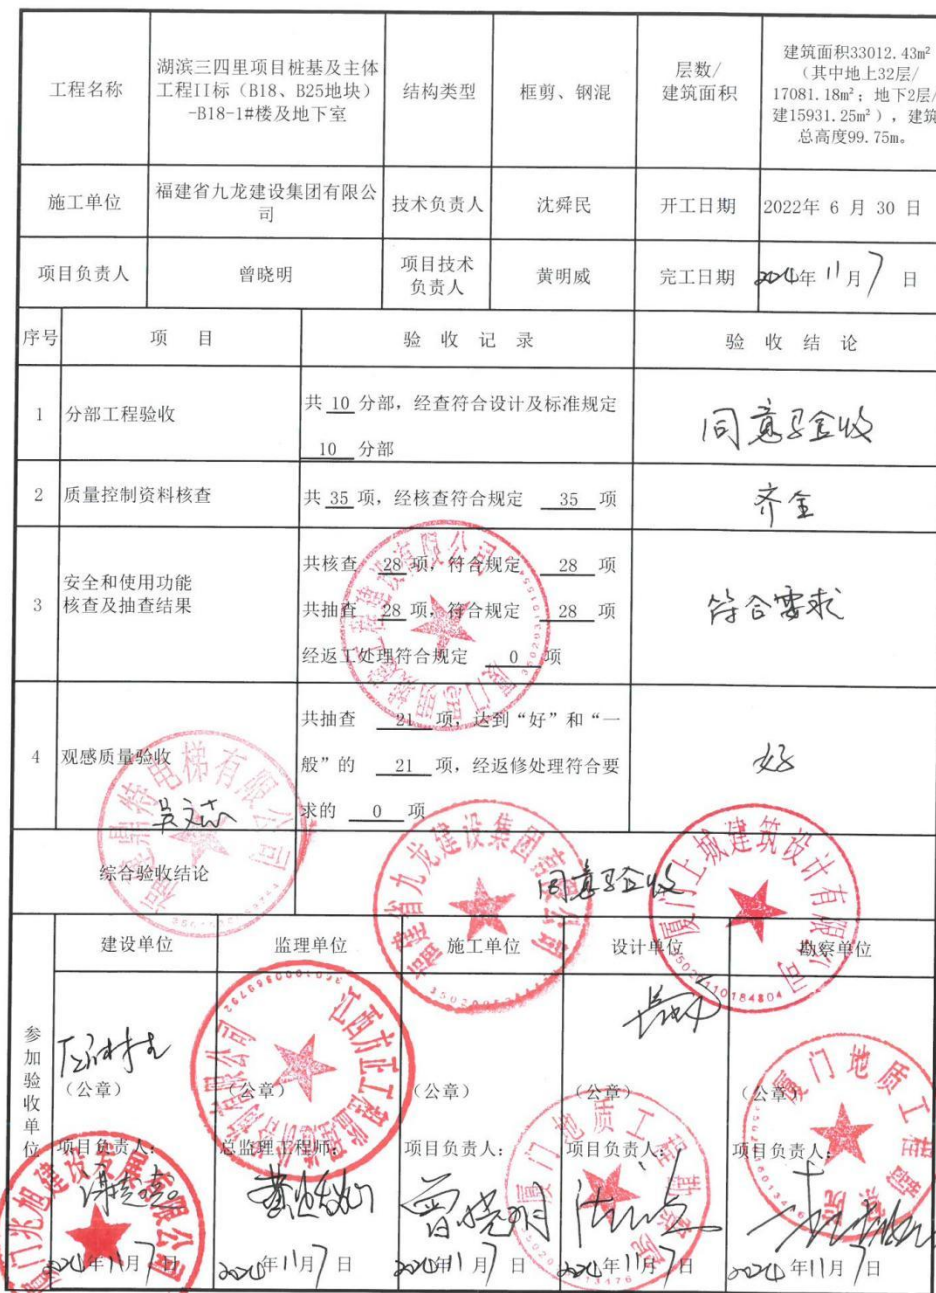 工程名称
湖滨三四里项目桩基及主体
工程II标（B18、B25地块）
-B18-1#楼及地下室
结构类型
框剪、钢混
层数/
建筑面积
建筑面积33012.43m²
（其中地上32层/
17081.18m²；地下2层/
建15931.25m²），建筑
总高度99.75m。
施工单位
福建省九龙建设集团有限公
司
技术负责人
沈舜民
开工日期
2022年 6 月 30 日
项目负责人
曾晓明
项目技术
负责人
黄明威
完工日期
2024年 11月 7 日
序号
项 目
验 收 记 录
验 收 结 论
1
分部工程验收
共 10 分部，经查符合设计及标准规定
10 分部
同意验收
2
质量控制资料核查
共 35 项，经核查符合规定 35 项
齐全
3
安全和使用功能
核查及抽查结果
共核查 28 项，符合规定 28 项
共抽查 28 项，符合规定 28 项
经返工处理符合规定 0 项
符合要求
4
观感质量验收
共抽查 21 项，达到“好”和“一
般”的 21 项，经返修处理符合要
求的 0 项
好
综合验收结论
同意验收
参加验收单位
建设单位
监理单位
施工单位
设计单位
勘察单位
（公章）
（公章）
（公章）
（公章）
（公章）
项目负责人：
总监理工程师：
项目负责人：
项目负责人：
项目负责人：
曾晓明
2024年11月7日
2024年11月7日
2024年11月7日
2024年11月7日
2024年11月7日
福建省九龙建设集团有限公司
厦门上城建筑设计有限公司
35020110184804
厦门兆旭建设发展有限公司